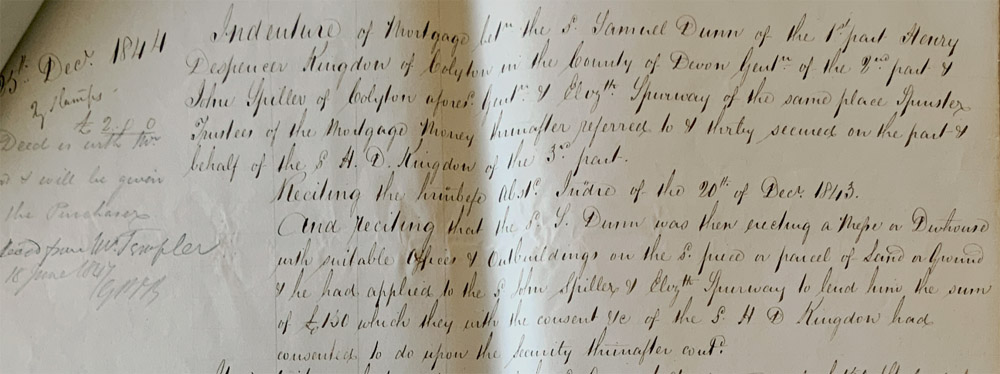 Dec.r 1844
2 stamps
£2 . 0
Deed is with
& will be given
the Purchaser
from Mr. Templer
18 June 1847
Indenture of Mortgage betn the sd. Samuel Dunn of the 1st part Henry
Despencer Kingdon of Colyton in the County of Devon Gentn of the 2nd part &
John Spiller of Colyton aforesd. Gentn & Elizth Spurway of the same place Spinster
Trustees of the Mortgage Money thereinafter referred to & thereby secured on the part &
behalf of the sd H. D. Kingdon of the 3rd part.
Reciting the hinbefe abstd. Indre of the 20th of Decr 1843.
And reciting that the sd. S. Dunn was then erecting a Messe or Dwhouse
with suitable Offices & Outbuildings on the sd. piece or parcel of Land or Ground
& he had applied to the sd John Spiller & Elizth Spurway to lend him the sum
of £130 which they with the consent &c of the sd. H D Kingdon had
consented to do upon the security thereinafter contd.